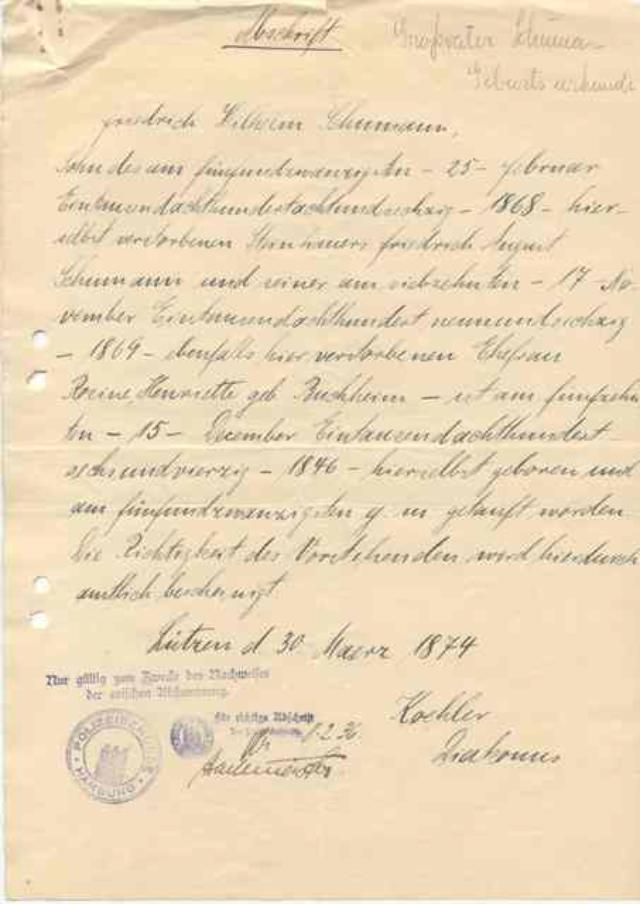 Abschrift
Großvater Schuman
Geburtsurkunde
Friedrich Wilhelm Schumann,
Sohn des am fünfundzwanzigsten - 25 - Februar
Eintausendachthundertachtundsechzig - 1868 - hier-
selbst verstorbenen Steinhauers Friedrich August
Schumann und seiner am siebzehnten - 17 - No
vember Eintausendachthundert neunundsechzig
- 1869 - ebenfalls hier verstorbenen Ehefrau
Rosine Henriette geb Buchheim - ist am fünfzehn
ten - 15 - December Eintausendachthundert
sechsundvierzig - 1846 - hierselbst geboren und
am fünfundzwanzigsten g. m getauft worden
Die Richtigkeit des Vorstehenden wird hierdurch
amtlich bescheinigt
Lützen d 30 Maerz 1874
Nur gültig zum Zwecke des Nachweises
der arischen Abstammung.
Koehler
Diakonus
für richtige Abschrift
1.2.36
POLIZEIBEHÖRDE
HAMBURG